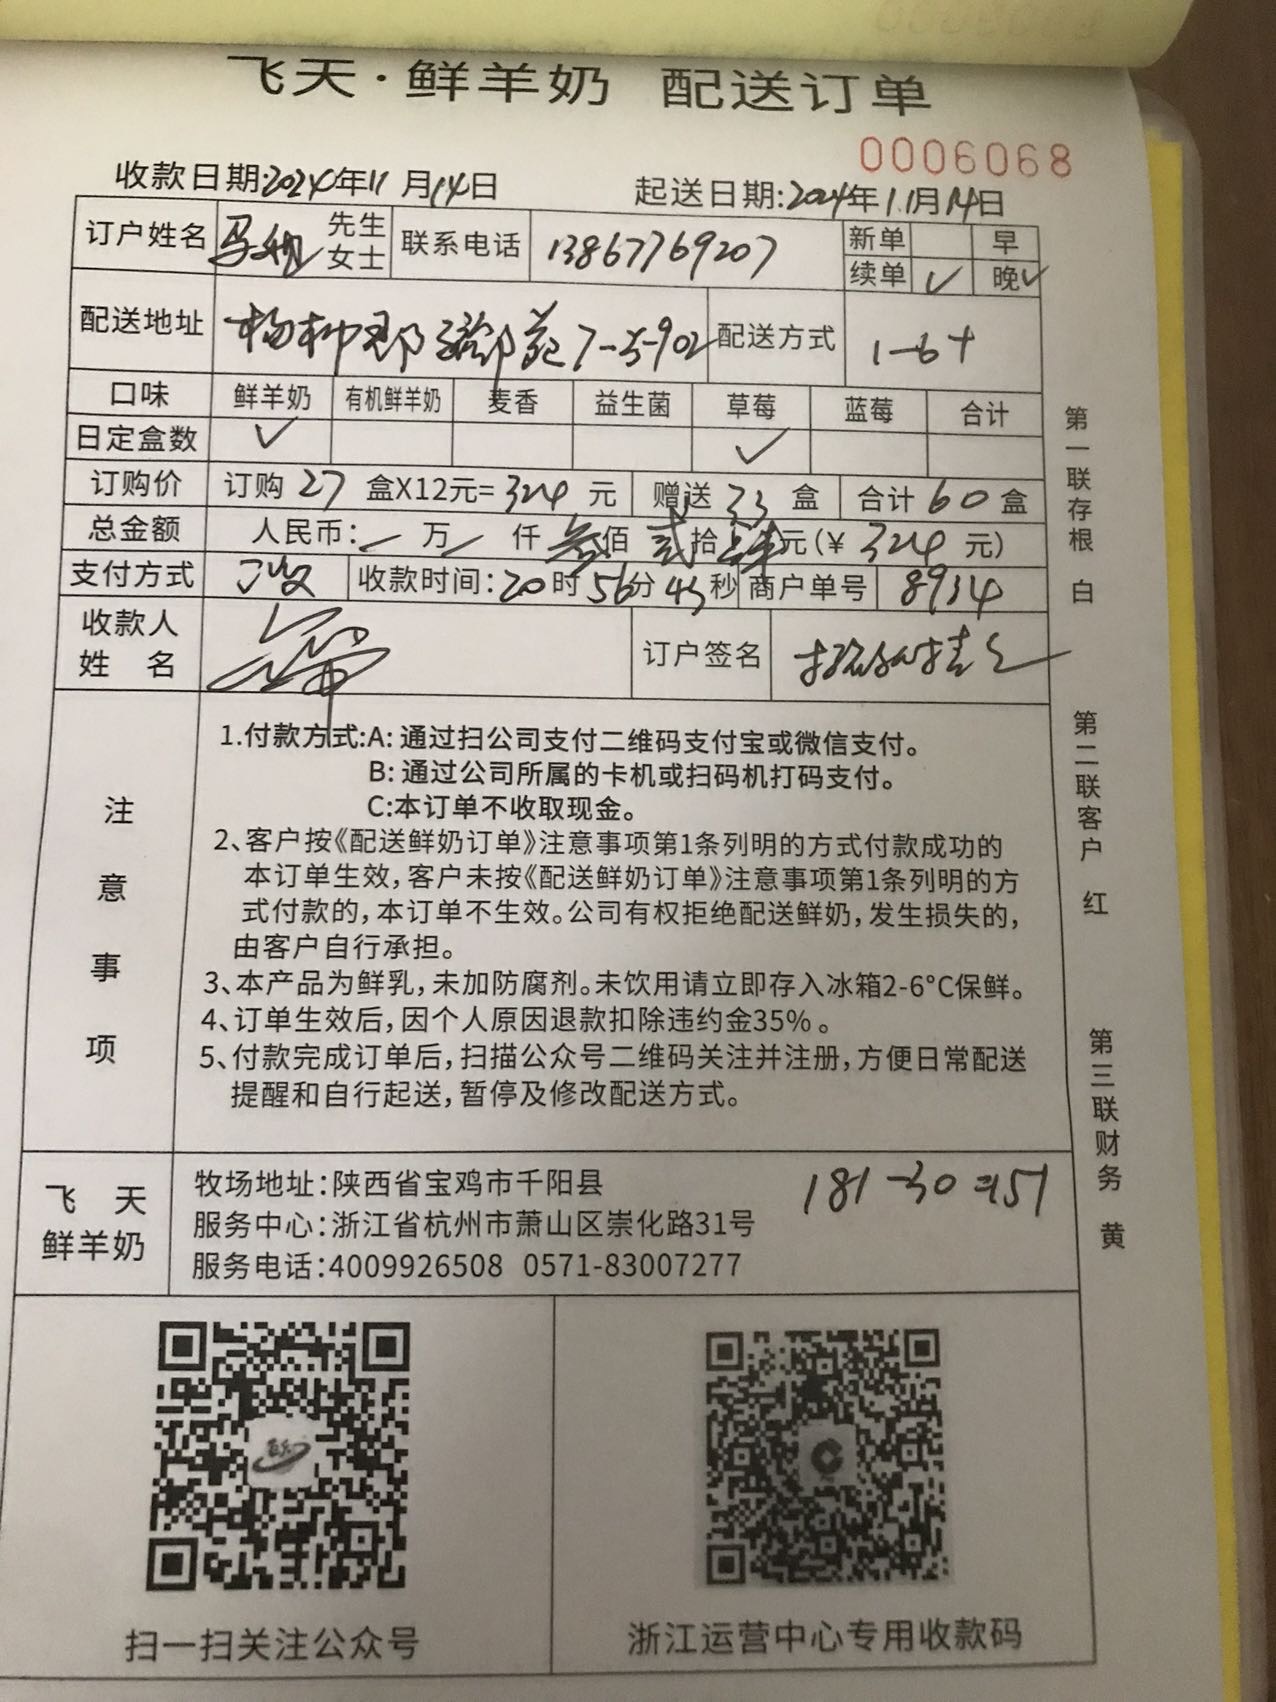 飞天·鲜羊奶 配送订单
0006068
收款日期:2024年11月14日 起送日期:2024年11月14日
订户姓名 马 先生 女士 联系电话 13867769207 新单 早
续单 ✓ 晚✓
配送地址 杨柳郡 苑7-5-902 配送方式 1-6+
口味 鲜羊奶 有机鲜羊奶 麦香 益生菌 草莓 蓝莓 合计
日定盒数 ✓ ✓
订购价 订购 27 盒X12元=324 元 赠送 33 盒 合计 60 盒
总金额 人民币: 万 仟 叁佰 贰拾 肆元(¥ 324 元)
支付方式 收款时间:20时56分43秒 商户单号 8934
收款人
姓 名 订户签名
注意事项
1.付款方式:A:通过扫公司支付二维码支付宝或微信支付。
B:通过公司所属的卡机或扫码机打码支付。
C:本订单不收取现金。
2、客户按《配送鲜奶订单》注意事项第1条列明的方式付款成功的
本订单生效,客户未按《配送鲜奶订单》注意事项第1条列明的方
式付款的,本订单不生效。公司有权拒绝配送鲜奶,发生损失的,
由客户自行承担。
3、本产品为鲜乳,未加防腐剂。未饮用请立即存入冰箱2-6°C保鲜。
4、订单生效后,因个人原因退款扣除违约金35%。
5、付款完成订单后,扫描公众号二维码关注并注册,方便日常配送
提醒和自行起送,暂停及修改配送方式。
飞 天
鲜羊奶
牧场地址:陕西省宝鸡市千阳县
服务中心:浙江省杭州市萧山区崇化路31号
服务电话:4009926508 0571-83007277
181-30=151
扫一扫关注公众号 浙江运营中心专用收款码
第一联存根 白
第二联客户 红
第三联财务 黄